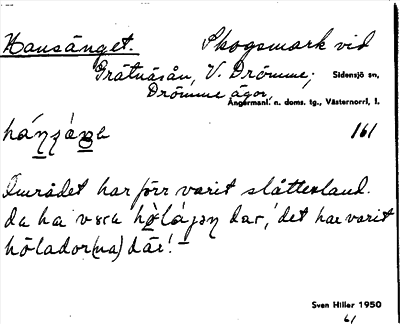 Hansänget. Skogsmark vid
Gråtnäsån, V. Drömme, Sidensjö sn,
Drömme ägor,
Ångermanl. n. doms. tg., Västernorrl. l.
161
Området har förr varit slåttesland.
da ha vara dar, ' det har varit
hölador(na) där! –
Sven Hiller 1950
61